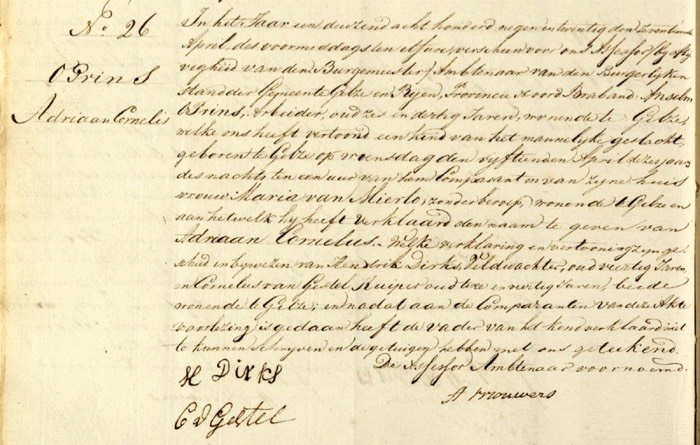 No. 26
O Prins
Adriaan Cornelis
In het Jaar een duizend acht honderd negen en twintig den Zeventienden
April des voormiddags ten elf ure, verscheen voor ons Assessor / by afwe
zigheid van den Burgemeester / Ambtenaar van den Burgerlyken
stand der Gemeente Gelze en Ryen, Provincie Noord Braband. Anselm
O Prins, Arbeider, oud zes en dertig Jaren, wonende te Gelze,
welke ons heeft vertoond een kind van het mannelyke geslacht,
geboren te Gelze op woensdag den vyftienden April dezes jaars
des nachts ten een uur van hem Comparant en van zyne huis
vrouw Maria van Mierlo, zonder beroep, wonende te Gelze en
aan hetwelk hy heeft verklaard den naam te geven van
Adriaan Cornelus. Welke verklaring en vertooning zyn ge
schied in bywezen van Hendrik Dirks, Veldwachter, oud veertig Jaren,
en Cornelus van Gestel Kuiper oud twee en veertig Jaren, beide
wonende te Gelze; en nadat aan de Comparanten van deze Akte
voorlezing is gedaan heeft de vader van het kind verklaard niet
te kunnen schryven en de getuigen hebben met ons geteekend.
De Assessor Ambtenaar voornoemd.
H Dirks
A Vrouwers
C v Gestel